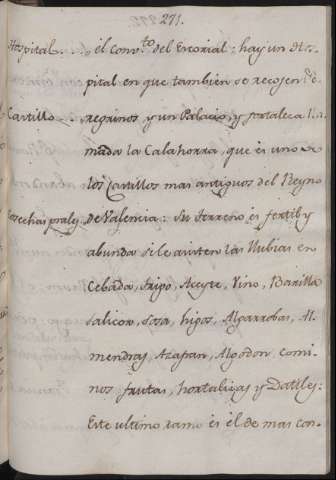 271.
Hospital... el conv.to del Escorial: hay un Hos-
pital en que tambien se recojen Pe-
Castillo... regrinos, y un Palacio, y fortaleza lla-
mada la Calahorra, que es uno de
los Castillos mas antiguos del Reyno
Cosechas prales. de Valencia: Su terreno es fertil y
abunda si le asisten las llubias en
Cebada, trigo, Aceyte, Vino, Barilla
salicor, sosa, higos, Algarrobas, Al-
mendras, Azafran, Algodon comi-
nos frutas, hortalizas y Datiles:
Este ultimo ramo es el de mas con-